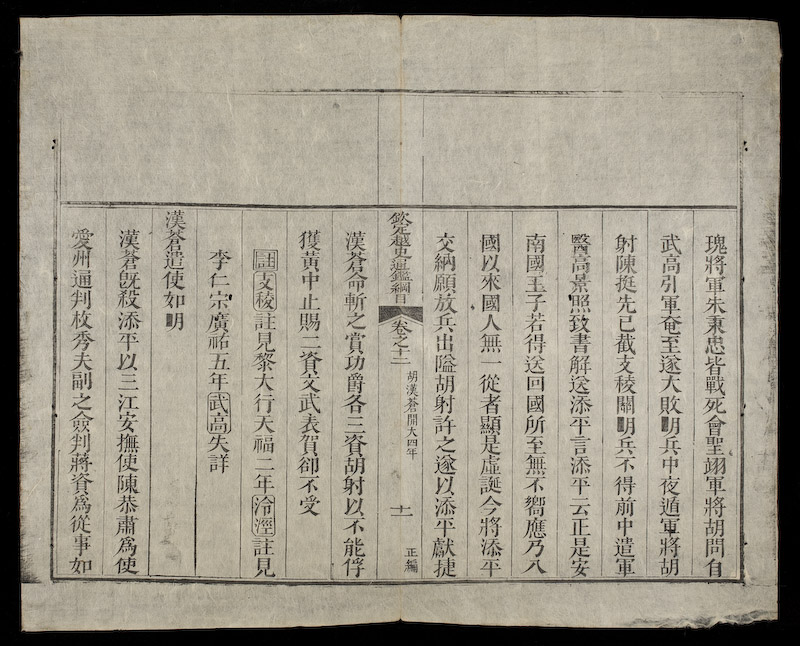 瑰將軍朱秉忠皆戰死會聖翊軍將胡問自
武高引軍奄至遂大敗明兵中夜遁軍將胡
射陳挺先已截支稜關明兵不得前中遣軍
醫高景照致書解送添平言添平云正是安
南國王子若得送回國所至無不嚮應乃入
國以來國人無一從者顯是虛誕今將添平
交納願放兵出隘胡射許之遂以添平獻捷
欽定越史通鑑綱目
卷之十二
胡漢蒼開大四年
十一
正編
漢蒼命斬之賞功爵各三資胡射以不能俘
獲黃中止賜二資文武表賀卻不受
註支稜註見黎大行天福二年泠涇註見
李仁宗廣祐五年武高失詳
漢蒼遣使如明
漢蒼旣殺添平以三江安撫使陳恭肅爲使
愛州通判枚秀夫副之僉判蔣資爲從事如